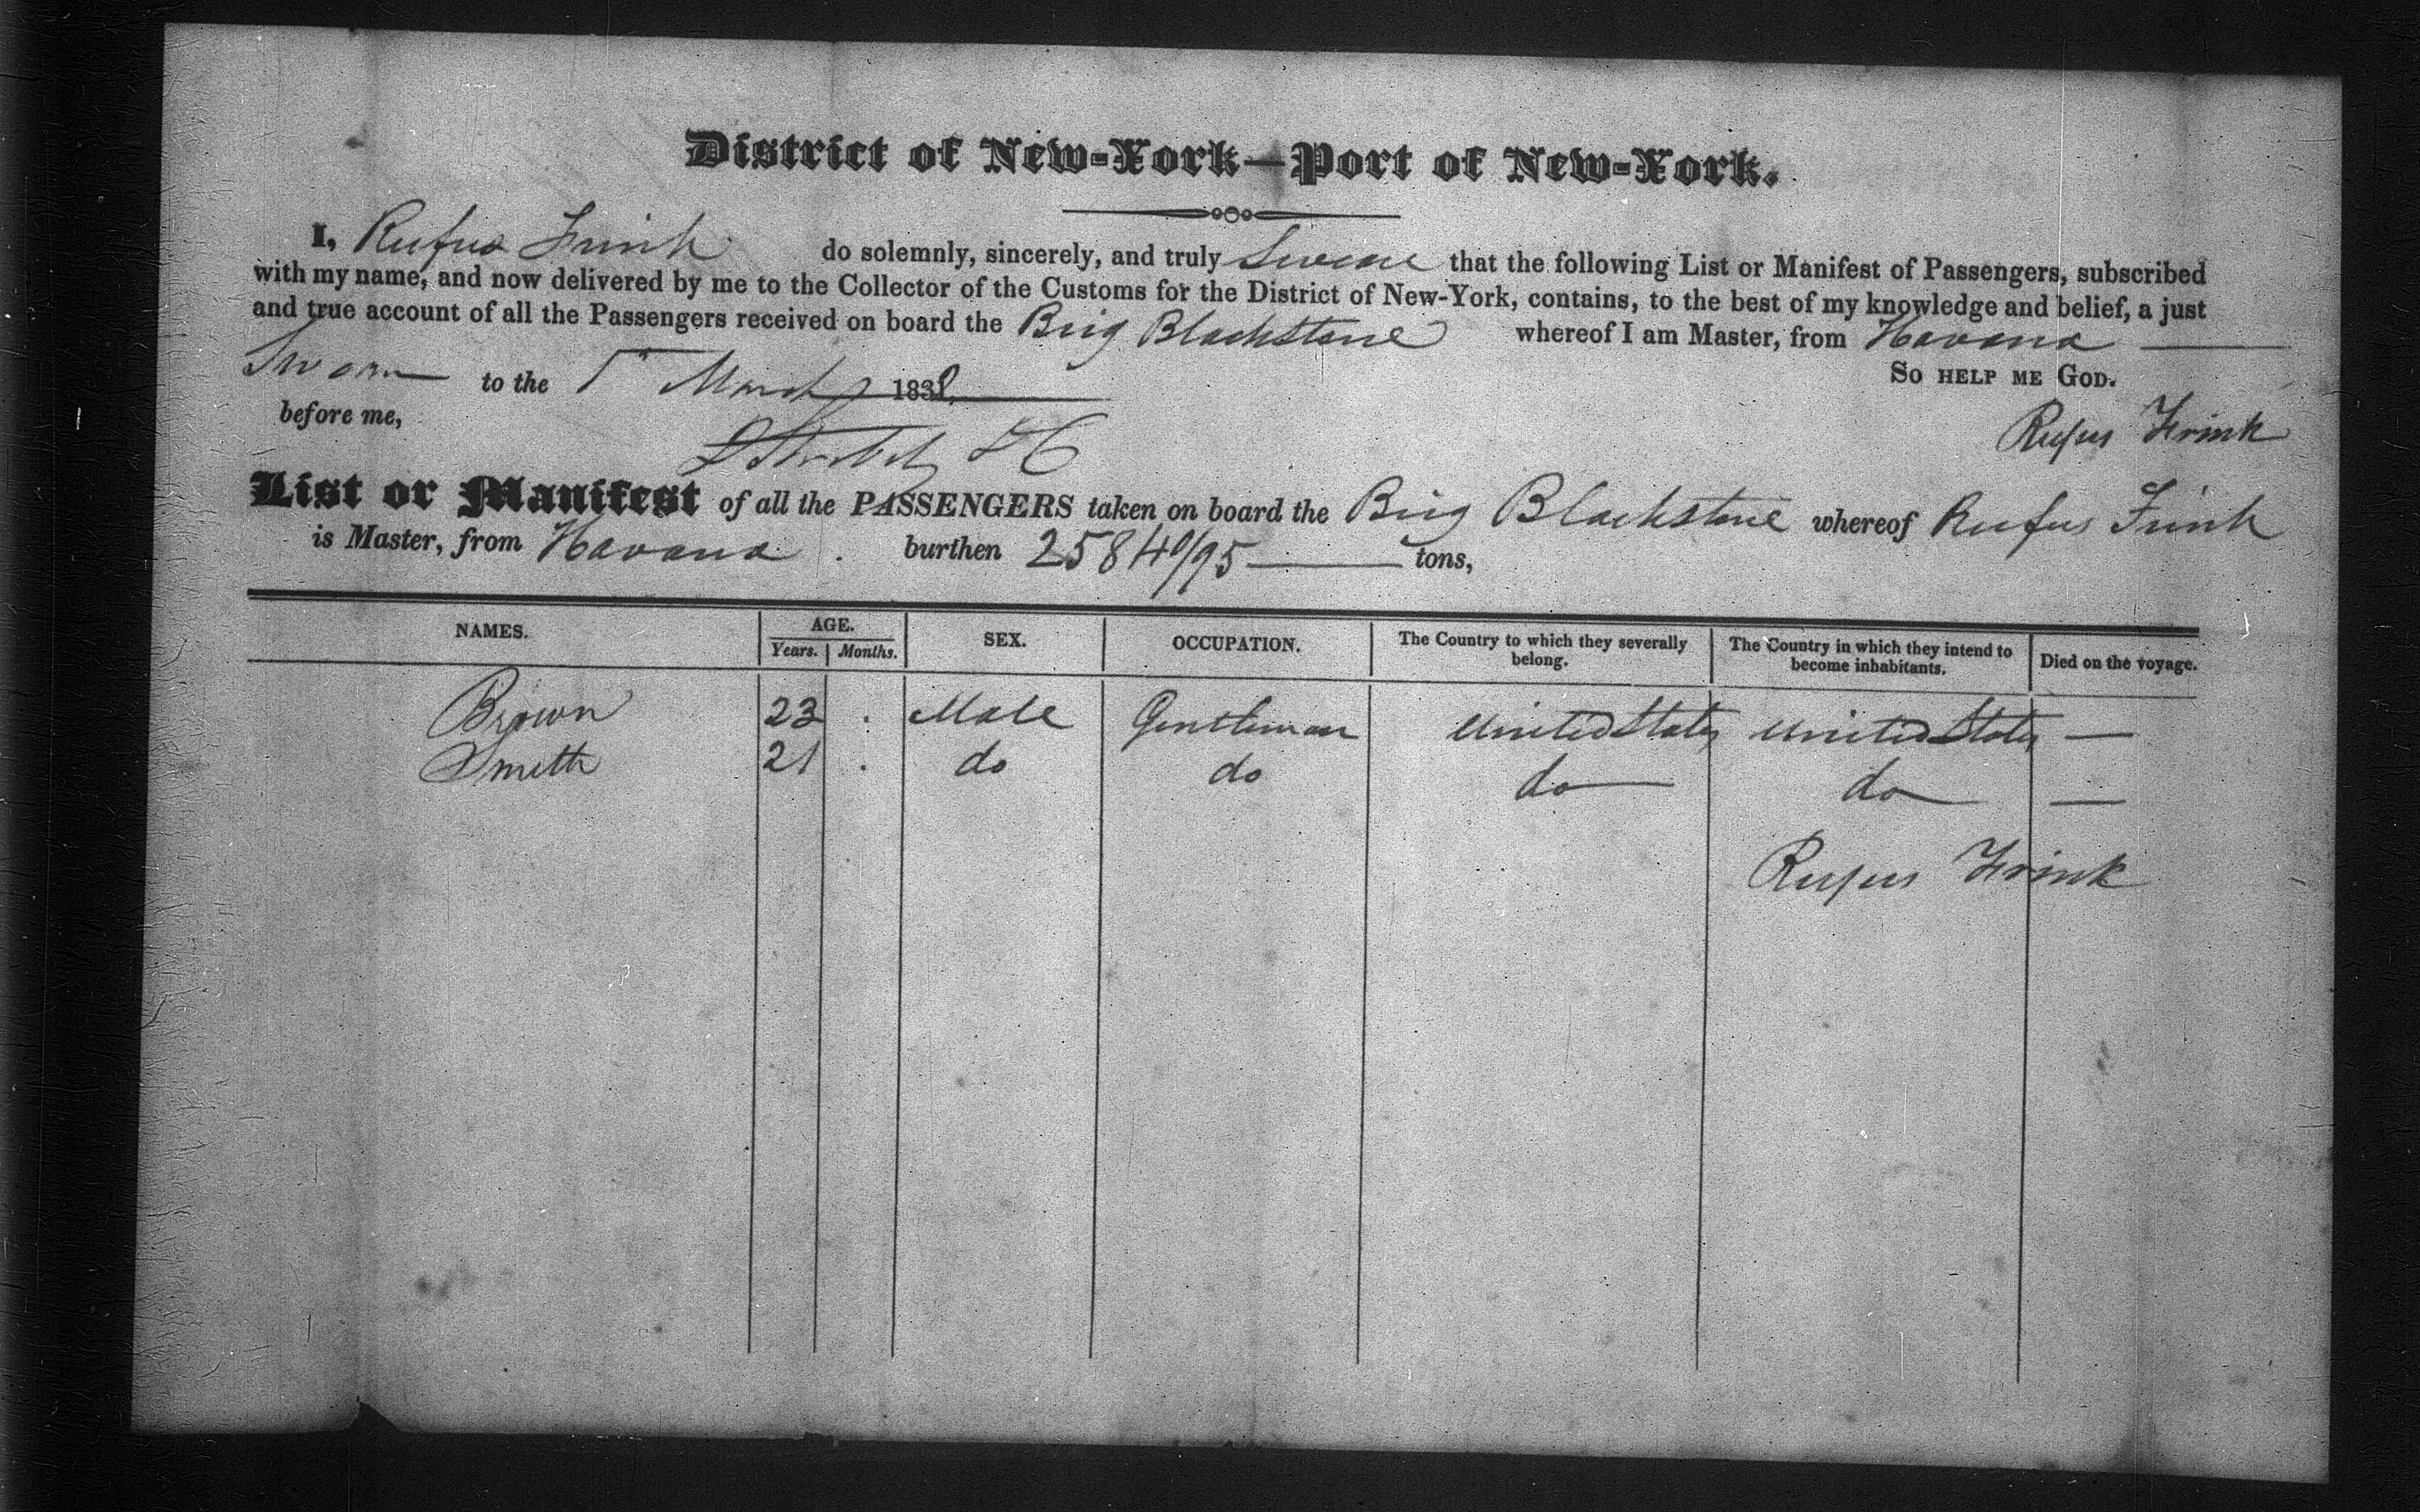 District of New-York—Port of New-York.
I, Rufus Frink do solemnly, sincerely, and truly Swear that the following List or Manifest of Passengers, subscribed
with my name, and now delivered by me to the Collector of the Customs for the District of New-York, contains, to the best of my knowledge and belief, a just
and true account of all the Passengers received on board the Brig Blackstone whereof I am Master, from Havana
So help me God.
Sworn to the 1 March 1838
before me,
Rufus Frink
List or Manifest of all the PASSENGERS taken on board the Brig Blackstone whereof Rufus Frink
is Master, from Havana . burthen 258 40/95 tons,
NAMES. AGE. Years. Months. SEX. OCCUPATION. The Country to which they severally belong. The Country in which they intend to become inhabitants. Died on the voyage.
Brown 23 . Male Gentleman United States United States —
Smith 21 . do do do do —
Rufus Frink